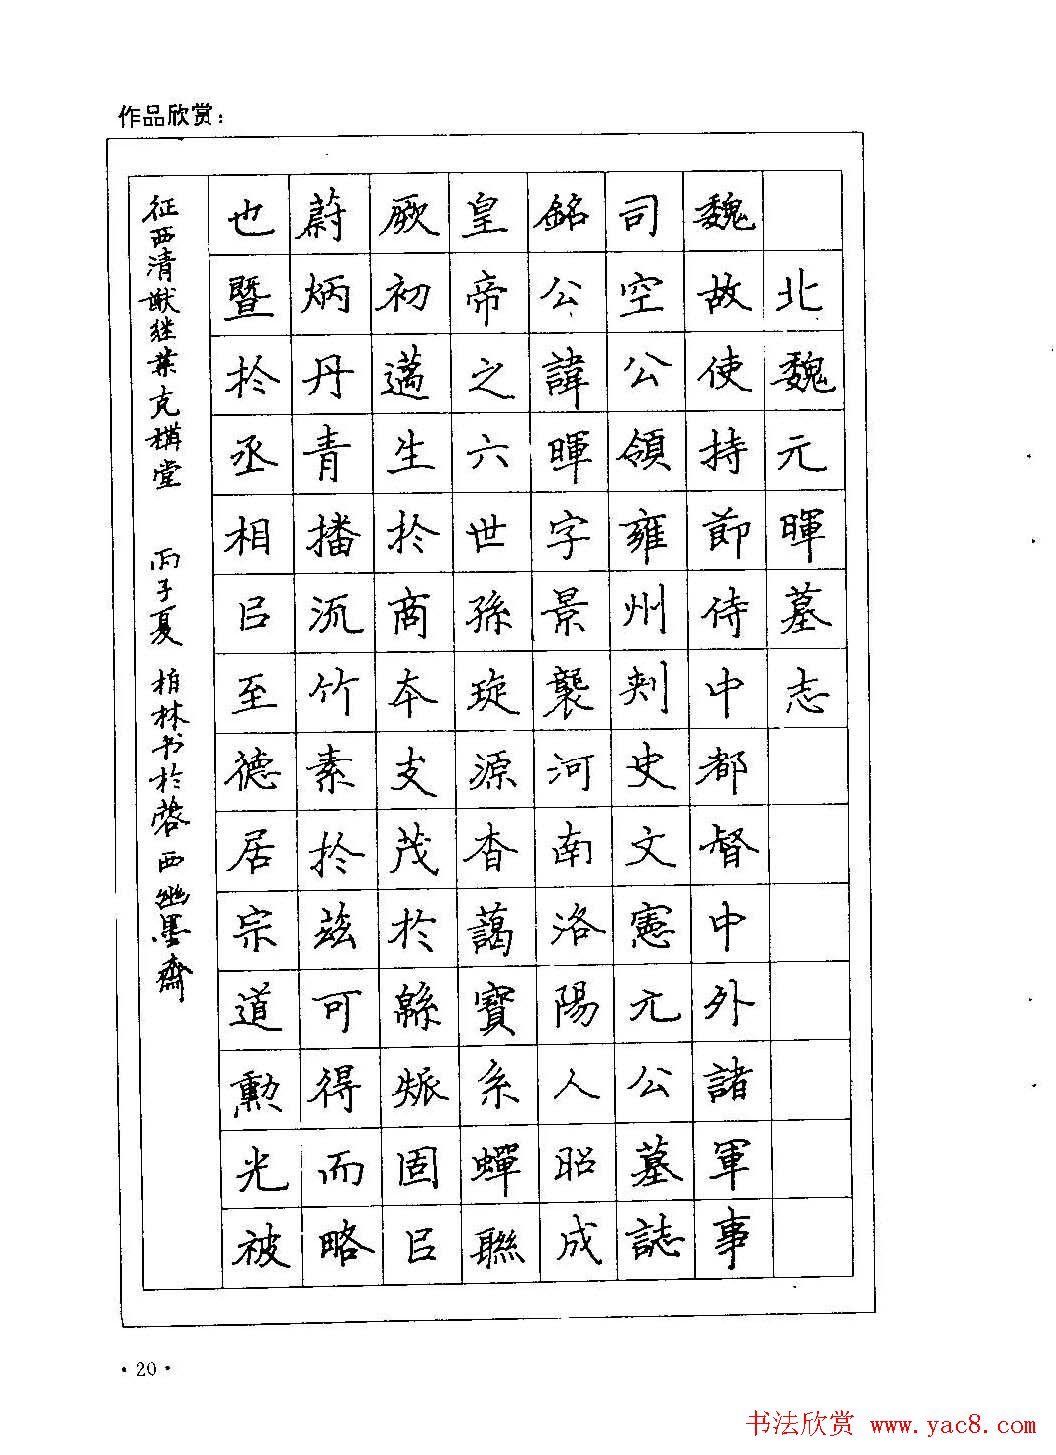 作品欣赏：
北魏元暉墓志
魏故使持節侍中都督中外諸軍事
司空公領雍州刾史文憲元公墓誌
銘公諱暉字景襲河南洛陽人昭成
皇帝之六世孫琁源杳藹寶系蟬聯
厥初邁生於商本支茂於緜㼌固㠯
蔚炳丹青播流竹素於兹可得而略
也暨於丞相㠯至德居宗道勲光被
征西清猷继業克構堂 丙子夏 柏林书於蓉西幽墨齋
·20·
书法欣赏 www.yac8.com